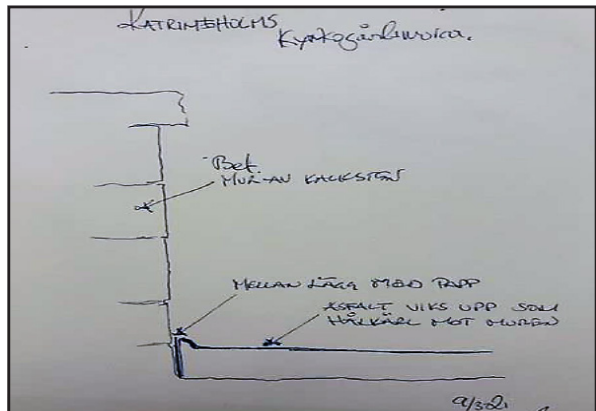 KATRINEHOLMS
Kyrkogårdsmurar.
Bef.
MUR AV KALKSTEN
MELLAN LÄGG MED PAPP
ASFALT VIKS UPP SOM
HÅLKÄRL MOT MUREN
9/3-21